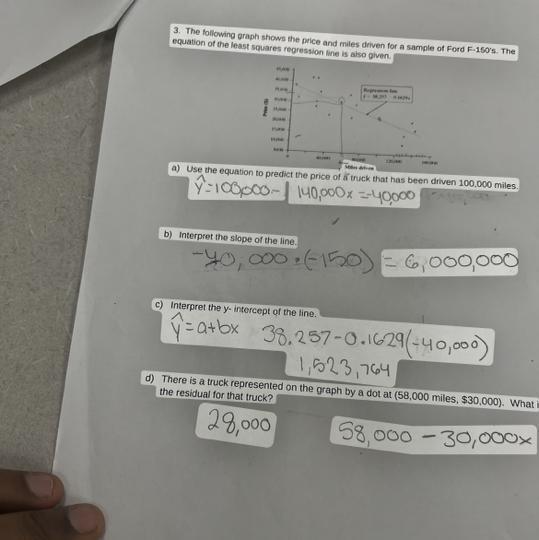 3. The following graph shows the price and miles driven for a sample of Ford F-150's. The
equation of the least squares regression line is also given.
Regression line
Price ($)
Miles driven
a) Use the equation to predict the price of a truck that has been driven 100,000 miles.
ŷ=100,000- 140,000x =-40,000
b) Interpret the slope of the line.
-40,000·(-150) = 6,000,000
c) Interpret the y- intercept of the line.
ŷ=a+bx 38.257-0.1629(-40,000)
1,523,764
d) There is a truck represented on the graph by a dot at (58,000 miles, $30,000). What
the residual for that truck?
28,000 58,000 - 30,000x